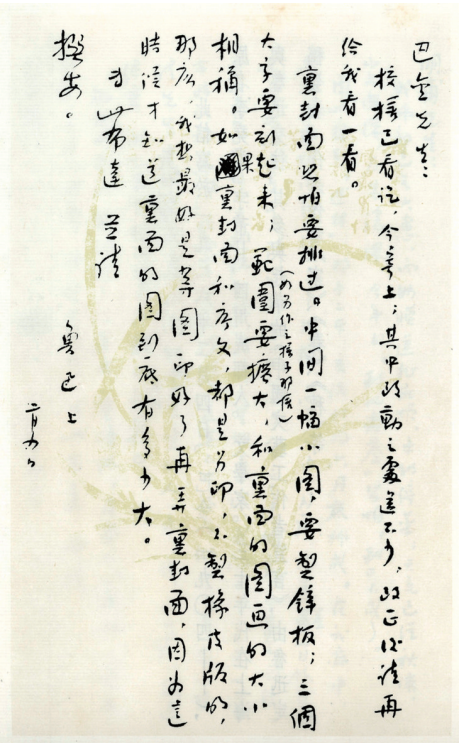 巴金先生:
校樣已看訖,今寄上;其中改動之處還不少,改正後請再
給我看一看。
裏封面恐怕要排过。中间一幅小圖,要製鋅板;三個
(如另作之樣子那樣)
大字要刻起来;範圍要擴大,和裏面的圖画的大小
相稱。如果裏封面和序文,都是另印,不製橡皮版的,
那麽,我想最好是等圖印好了再弄裏封面,因为這
時候才知道裏面的圖到底有多少大。
專此布達 並請
撰安。
魯迅上
二月四日